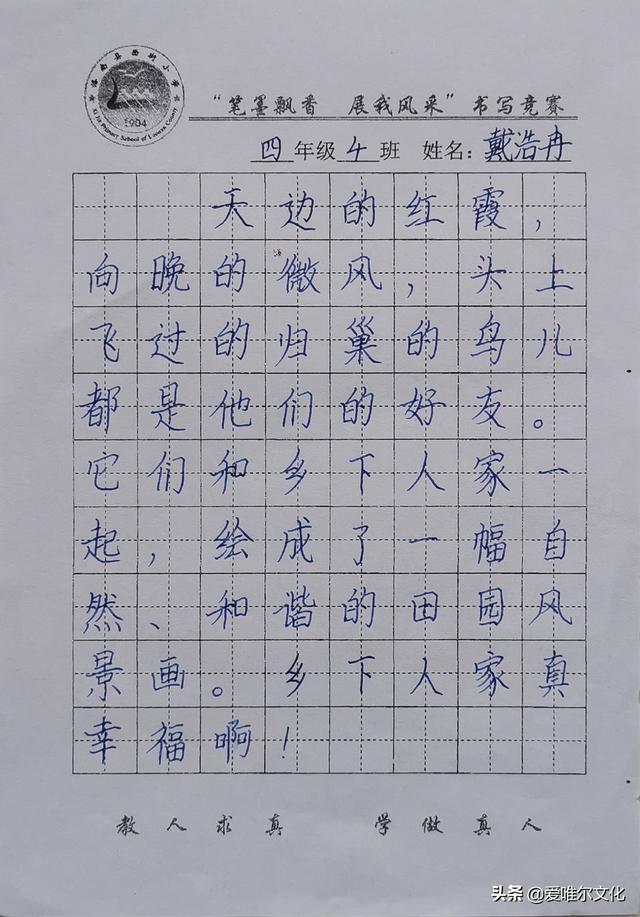 1904
“笔墨飘香 展我风采”书写竞赛
四年级4班 姓名：戴浩冉
天边的红霞，
向晚的微风，头上
飞过的归巢的鸟儿
都是他们的好友。
它们和乡下人家一
起，绘成了一幅自
然、和谐的田园风
景画。乡下人家真
幸福啊！
教人求真 学做真人
头条 @爱唯尔文化